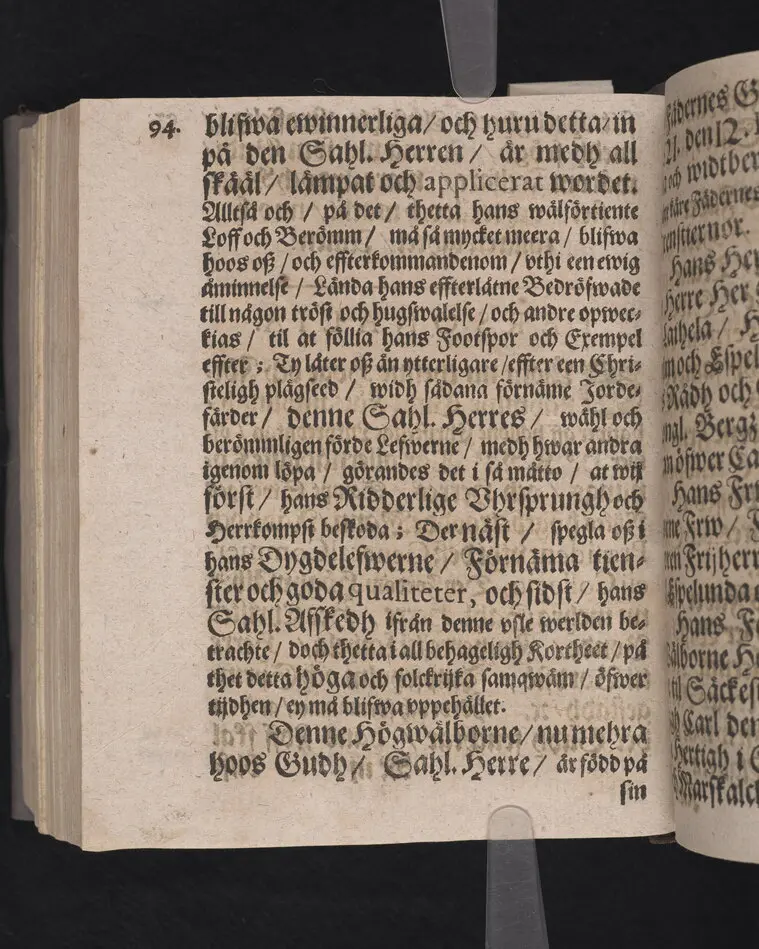 94.
blifwa ewinnerliga/ och huru detta/ in
på den Sahl. Herren / är medh all
skääl/ lämpat och applicerat wordet.
Alltså och / på det/ thetta hans wälförtiente
Loff och Berömm/ må så mycket meera / blifwa
hoos oß / och effterkommandenom / vthi een ewig
åminnelse / Lända hans effterlåtne Bedröfwade
till någon tröst och hugswalelse / och andre opwec-
kias / til at föllia hans Footspor och Exempel
effter ; Ty låter oß än ytterligare /effter een Chri-
steligh plägseed / widh sådana förnäme Jorde-
färder/ denne Sahl. Herres / wähl och
berömmligen förde Lefwerne / medh hwar andra
igenom löpa / görandes det i så måtto / at wij
först / hans Ridderlige Vhrsprungh och
Herrkompst beskoda ; Der näst / spegla oß i
hans Dygdelefwerne / Förnäma tien-
ster och goda qualiteter, och sidst / hans
Sahl. Afskedh ifrån denne vsle werlden be-
trachte / doch thetta i all behageligh Kortheet / på
thet detta höga och folckrijka samqwäm / öfwer
tijdhen / ey må blifwa vppehållet.
Denne Högwälborne/ nu mehra
hoos Gudh / Sahl. Herre / är född på
sin
21. den 12.
Hans
Herre Her
Rådh och
Hans Frw
Hans
Carl den
Hertigh i